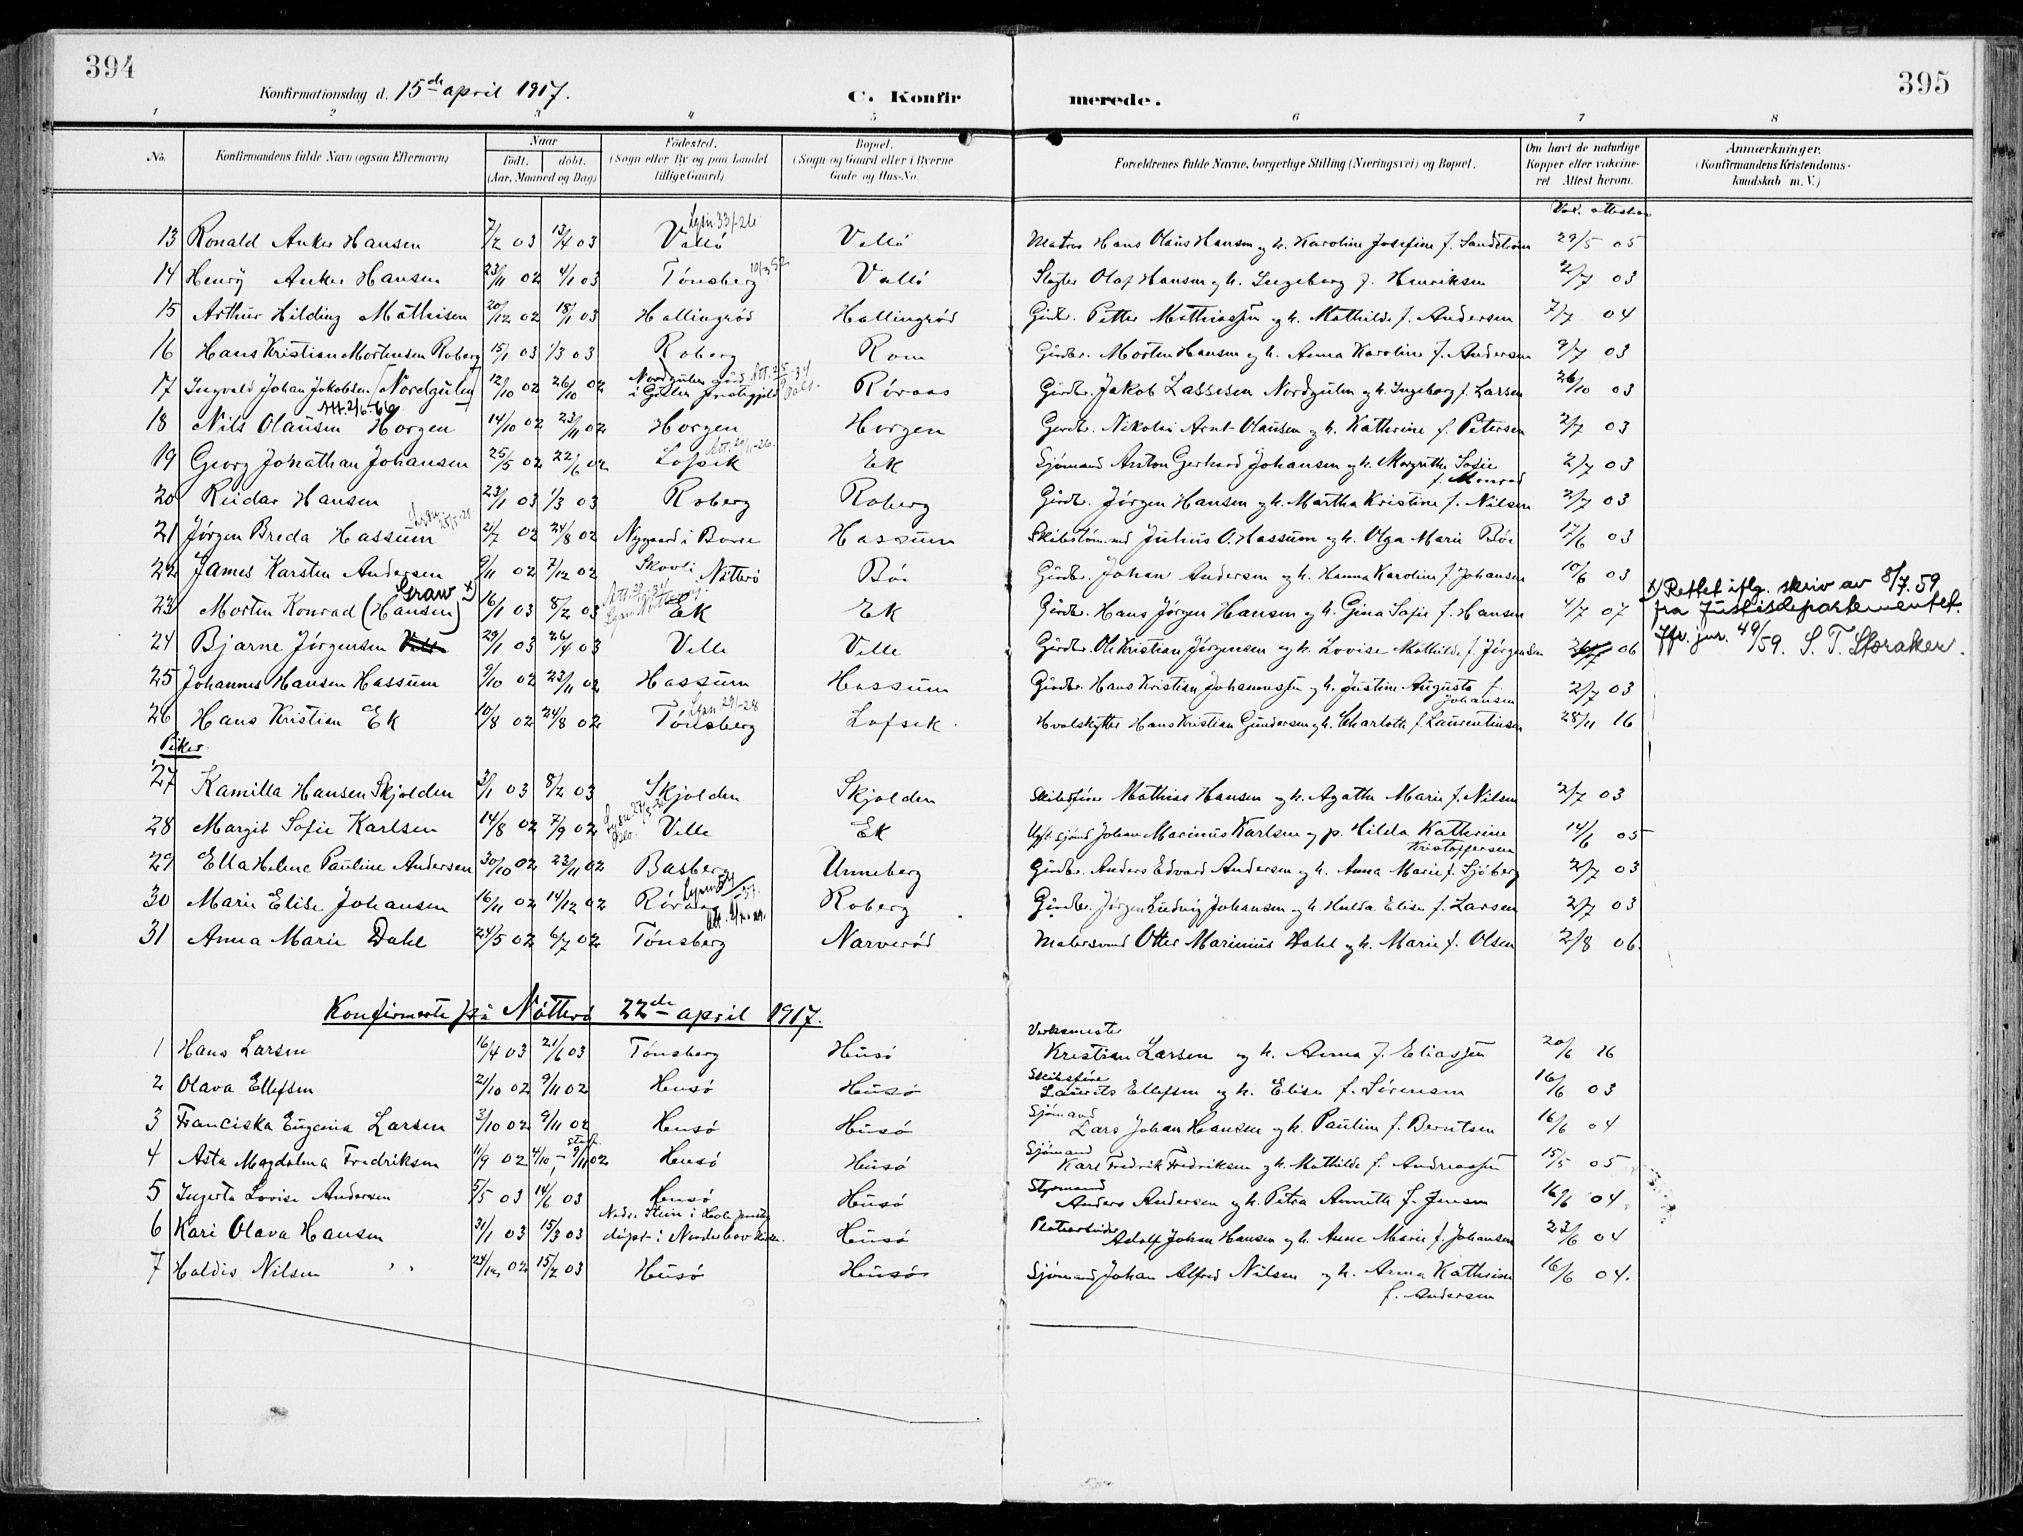 394
395
Konfirmationsdag d. 15de april 1917.
C. Konfirmerede.
1 2 3 4 5 6 7 8
No. Konfirmandens fulde Navn (ogsaa Efternavn) Naar født. døbt. (Aar, Maaned og Dag) Fødested. (Sogn eller By og paa Landet tillige Gaard) Bopæl. (Sogn og Gaard eller i Byerne Gade og Hus-No. Forældrenes fulde Navne, borgerlige Stilling (Næringsvei) og Bopæl. Om havt de naturlige Kopper eller vakcineret. Attest herom. Anmærkninger. (Konfirmandens Kristendomskundskab m. V.)
13 Ronald Anker Hansen 7/2 03 13/4 03 Vallö Vallö Matros Hans Olaus Hansen og h. Karoline Josefine f. Sandström 29/5 05
14 Henrÿ Anker Hansen 23/11 02 4/1 03 Tönsberg Vallö Slagter Olaf Hansen og h. Ingeborg f. Henriksen 2/7 03
15 Arthur Hilding Mathisen 20/12 02 18/1 03 Hallingröd Hallingröd Gårdbr. Petter Mathiassen og h. Mathilde f. Andersen 7/7 04
16 Hans Kristian Mortensen Roberg 15/1 03 1/3 03 Roberg Rom Gårdbr. Morten Hansen og h. Anna Karoline f. Andersen 9/7 03
17 Ingvald Johan Jakobsen (Nordgulen) 12/10 02 26/10 02 Nordgulen gård i Gulen prestegjeld Röraas Gårdbr. Jakob Lassesen Nordgulen og h. Ingeborg f. Larsen 26/10 03
18 Nils Olausen Horgen 14/10 02 23/11 02 Horgen Horgen Gårdbr. Nikolai Arnt Olausen og h. Kathrine f. Petersen 2/7 03
19 Georg Jonathan Johansen 25/5 02 22/6 02 Lofsek Ek Sjömand Anton Gerhard Johansen og h. Margrethe Sofie f. Monrad 2/7 03
20 Reidar Hansen 23/1 03 1/3 03 Roberg Roberg Gårdbr. Jörgen Hansen og h. Martha Kristine f. Nilsen 2/7 03
21 Jörgen Breda Hassum 21/7 02 24/8 02 Nygaard i Borre Hassum Skibstöm.md Julius O. Hassum og h. Olga Marie Böe 17/6 03
22 James Karsten Andersen 9/11 02 7/12 02 Skovli Nötterö Böe Gårdbr. Johan Andersen og h. Hanna Karoline f. Johansen 10/6 03
23 Morten Konrad (Hansen) Graw x) 16/1 03 8/2 03 Ek Ek Gårdbr. Hans Jörgen Hansen og h. Gina Sofie f. Hansen 4/7 07
x) Rettet iflg. skriv av 8/7.59 fra Justisdepartementet. Jfr. jnr. 49/59. S. T. Storaker.
24 Bjarne Jörgensen 29/1 03 26/4 03 Velle Velle Gårdbr. Ole Kristian Jörgensen og h. Lovise Mathilde f. Jörgensen 06
25 Johannes Hansen Hassum 9/10 02 23/11 02 Hassum Hassum Gårdbr. Hans Kristian Johannessen og h. Justine Augusta f. Johansen 2/7 03
26 Hans Kristian Ek 10/8 02 24/8 02 Tönsberg Lofsek. Hvalskytter Hans Kristian Gundersen og h. Charlotte f. Laurentiusen 28/11 16
Piker.
27 Kamilla Hansen Skjolden 3/1 03 8/2 03 Skjolden Skjolden Skibsförer Mathias Hansen og h. Agathe Marie f. Nilsen 2/7 03
28 Margit Sofie Karlsen 14/8 02 7/9 02 Velle Ek Ugft. sjömd Johan Marinius Karlsen og p. Hilda Kathrine Kristoffersen 14/6 05
29 Ella Helene Pauline Andersen 30/10 02 23/11 02 Basberg Unneberg Gårdbr. Anders Edvard Andersen og h. Anna Marie f. Sjöberg 2/7 03
30 Marie Elise Johansen 16/11 02 14/12 02 Röraas Roberg Gårdbr. Jörgen Ludvig Johansen og h. Hulda Elise f. Larsen 2/7 03
31 Anna Marie Dahl 24/5 02 6/7 02 Tönsberg Narveröd Malersvend Otter Marinius Dahl og h. Marie f. Olsen 2/8 06.
Konfirmerte på Nötterö 22de april 1917.
1 Hans Larsen 16/4 03 21/6 03 Tönsberg Husö Verksmester Kristian Larsen og h. Anna f. Eliassen 20/6 16
2 Olava Ellefsen 21/10 02 9/11 02 Husö Husö Skibsförer Laurits Ellefsen og h. Elise f. Sörensen 16/6 03
3 Franciska Eugenia Larsen 3/10 02 9/11 02 Husö Husö Sjömand Lars Johan Hansen og h. Pauline f. Berntsen 16/6 04
4 Asta Magdalena Fredriksen 11/9 02 4/10, - 9/11 02 Husö Husö Sjömand Karl Fredrik Fredriksen og h. Mathilde f. Andreassen 15/5 05
5 Ingerta Lovise Andersen 5/5 03 14/6 03 Husö Husö Styrmand Anders Andersen og h. Petra Annette f. Jensen 16/6 04.
6 Kari Olava Hansen 31/1 03 15/3 03 Nedre Stein i Hole prestegj. döpt i Norderhov kirke. Husö Platearbeider Adolf Johan Hansen og h. Anne Marie f. Johansen 23/6 04
7 Haldis Nilsen 24/12 02 15/2 03 Husö Husö Sjömand Johan Alfred Nilsen og h. Anna Kathrine f. Andersen 16/6 04.